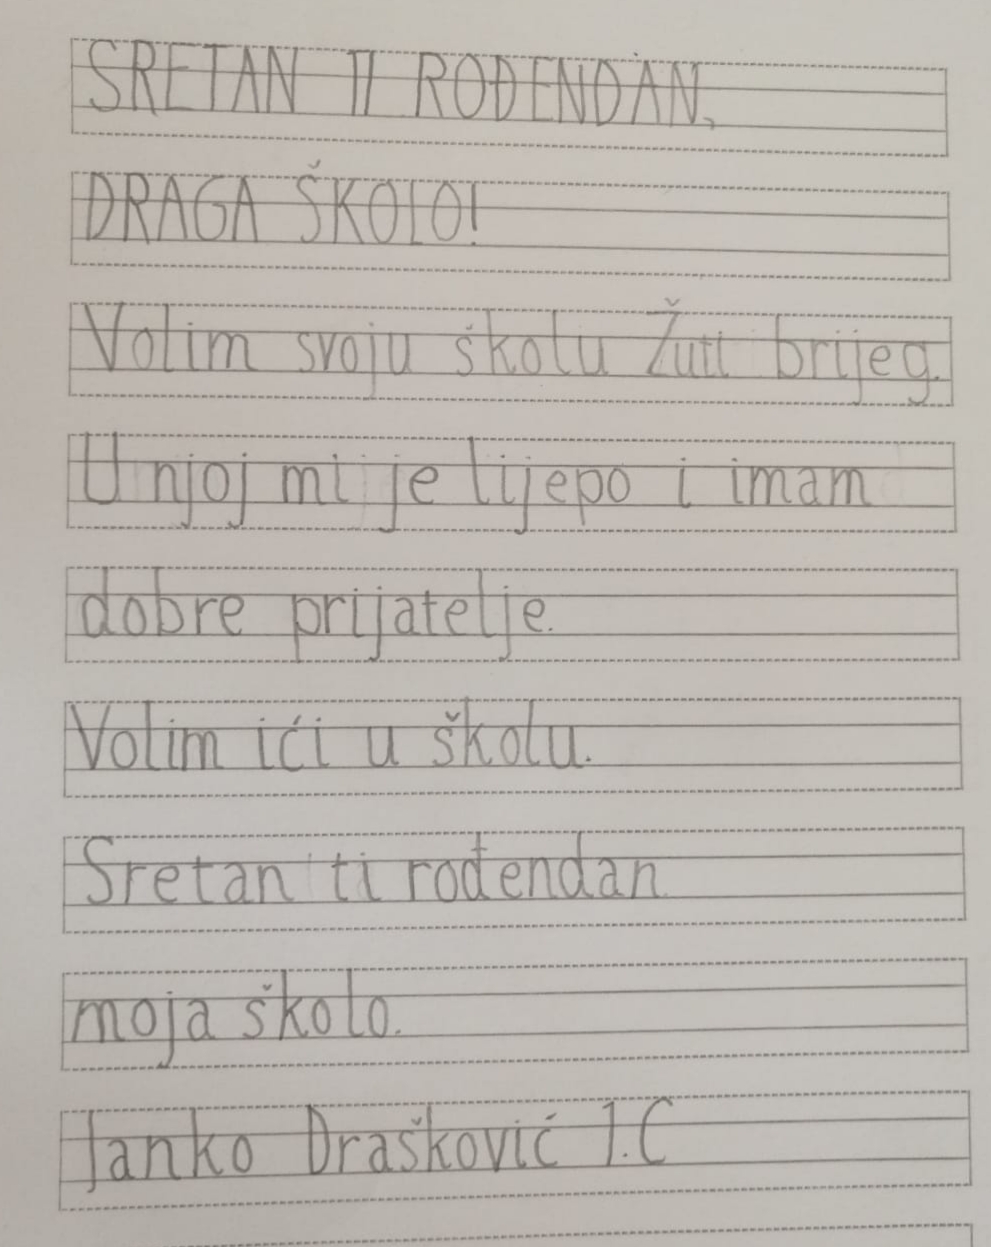 SRETAN TI ROĐENDAN,
DRAGA ŠKOLO!
Volim svoju školu Žuti brijeg.
U njoj mi je lijepo i imam
dobre prijatelje.
Volim ići u školu.
Sretan ti rođendan
moja školo.
Janko Drašković 1.C